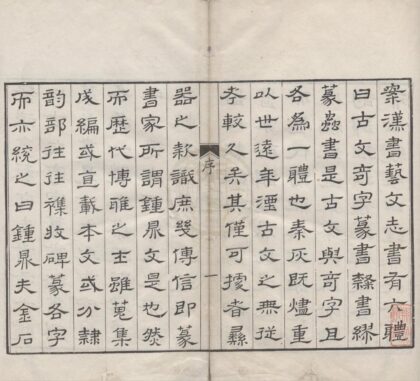 案漢書藝文志書有六體
曰古文奇字篆書隸書繆
篆蟲書是古文與奇字且
各為一體也秦灰既燼重
以世遠年湮古文之無從
考較久矣其僅可據者彝
序
一
器之款識庶幾傳信即篆
書家所謂鍾鼎文是也然
而歷代博雅之士雖蒐集
成編或直載本文或分隸
韵部往往襍收碑篆各字
而亦統之曰鍾鼎夫金石